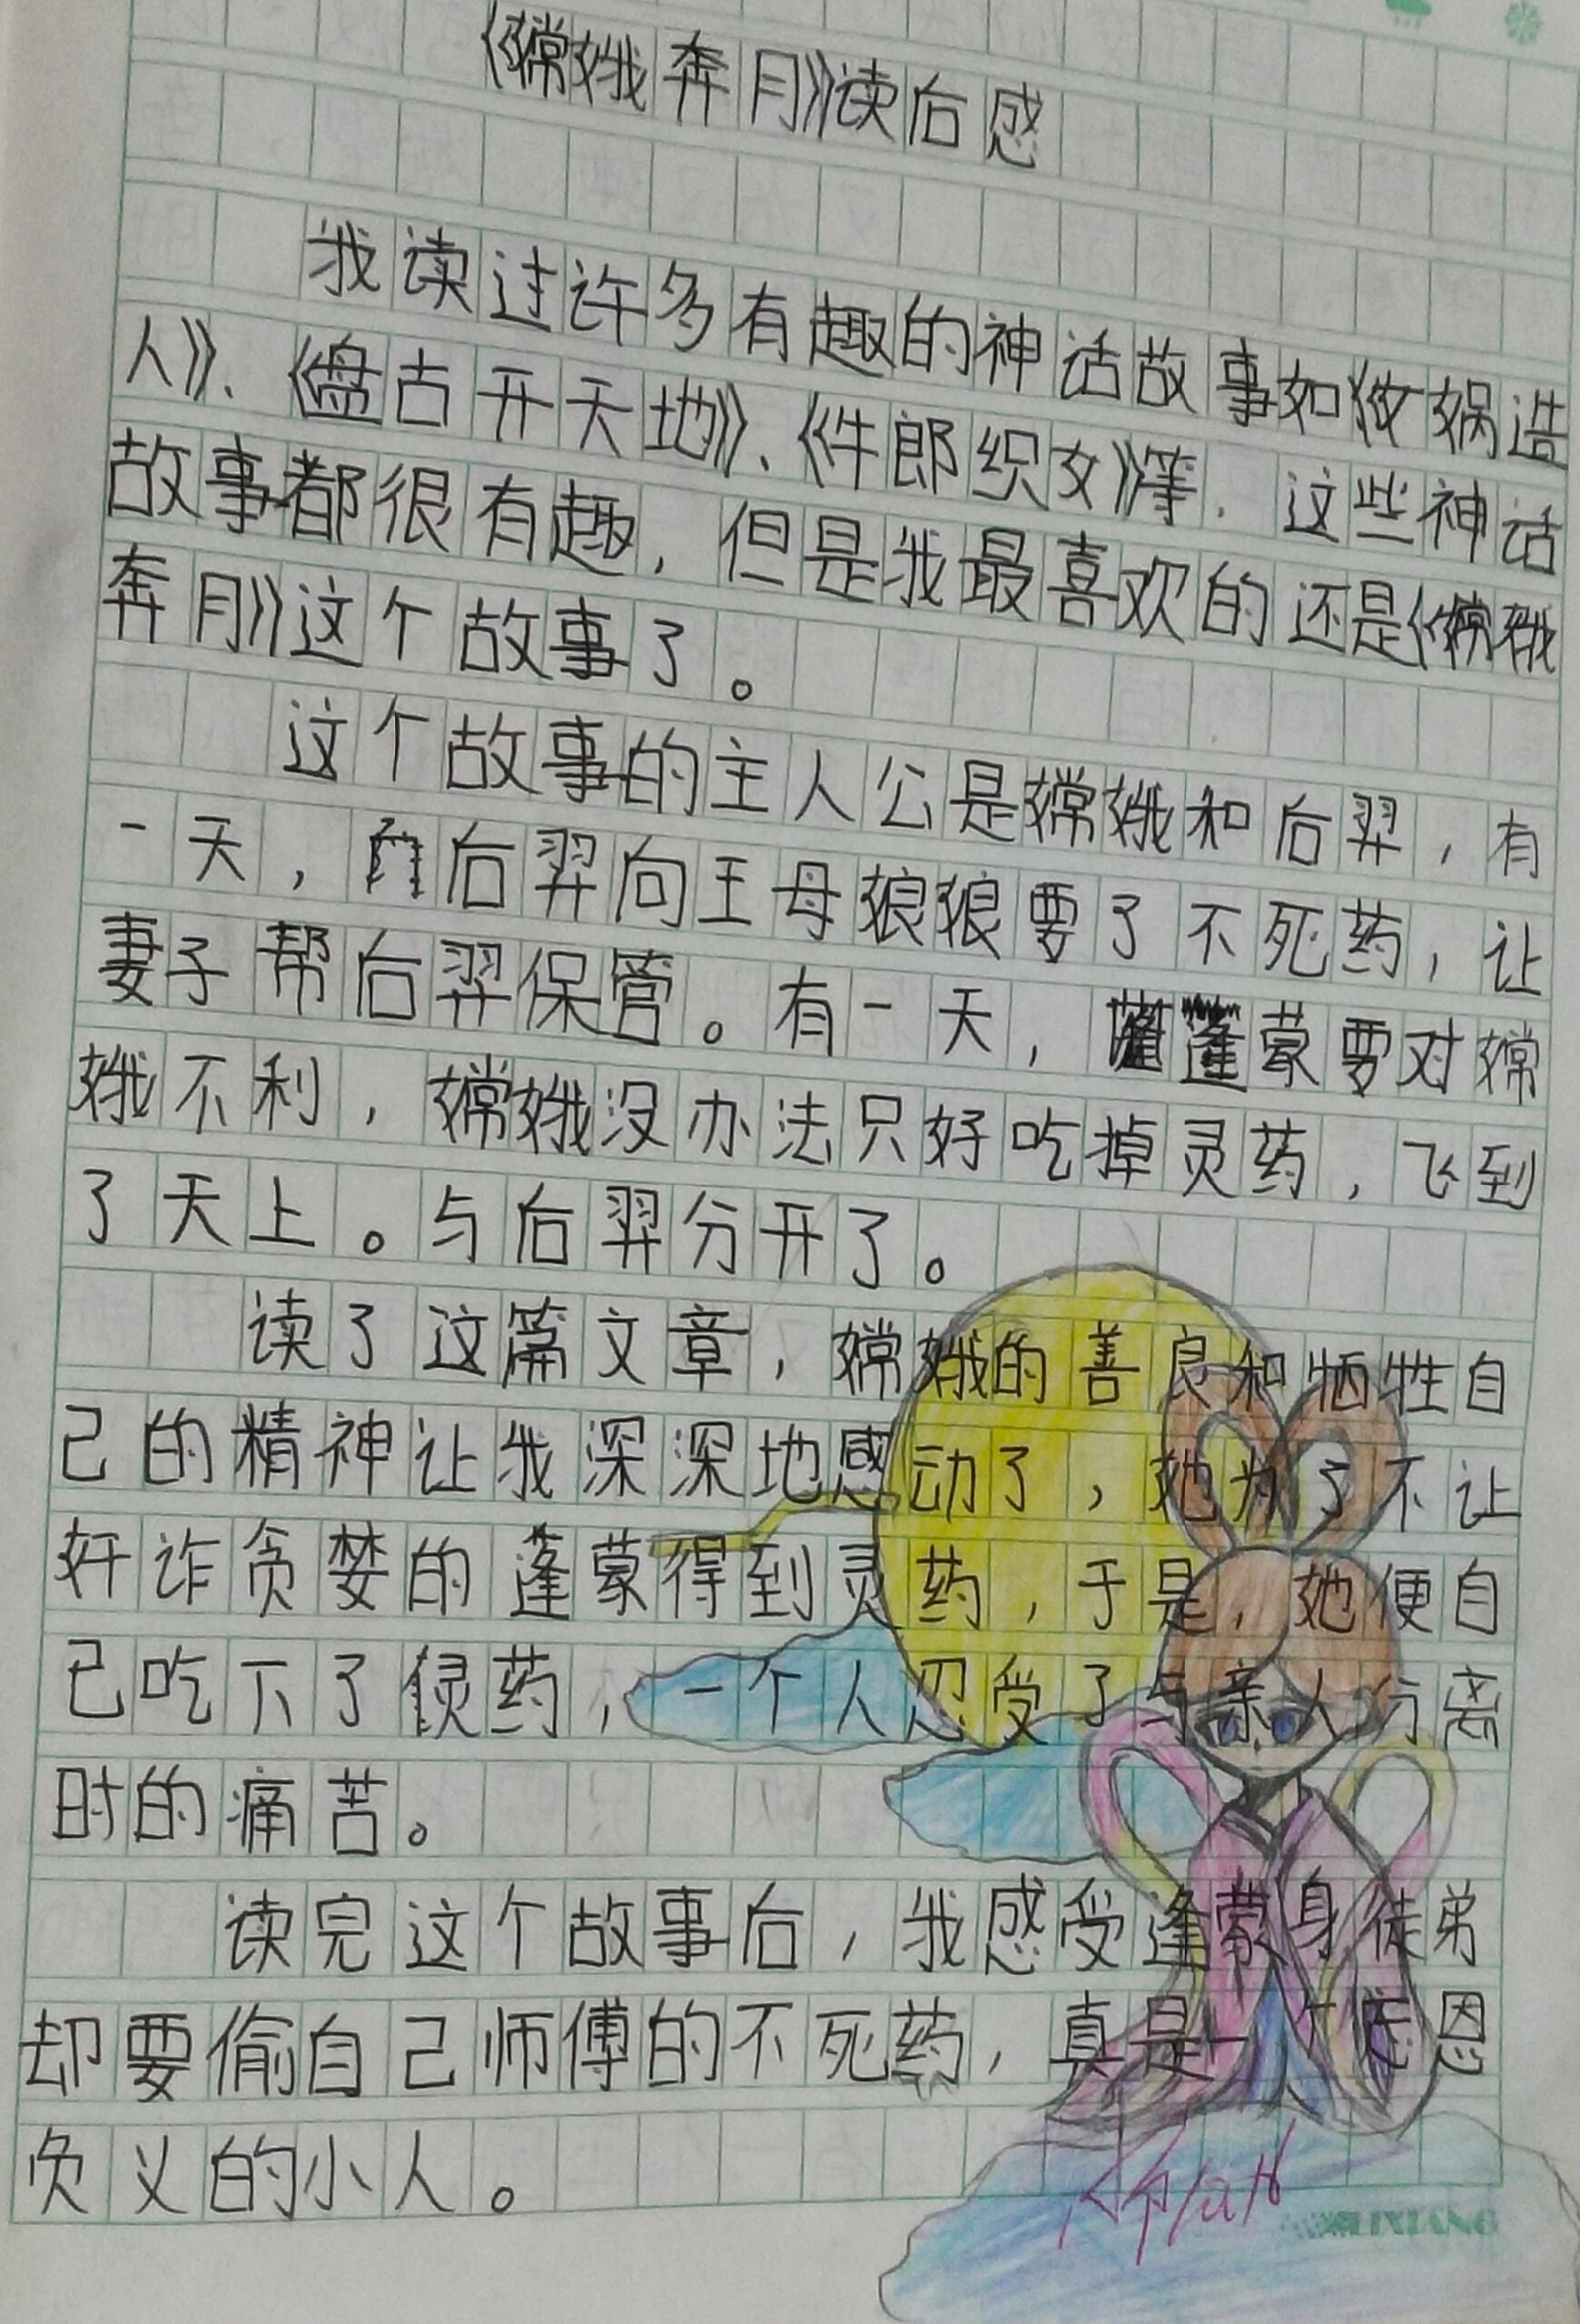 《嫦娥奔月》读后感
我读过许多有趣的神话故事如《女娲造
人》、《盘古开天地》、《牛郎织女》等.这些神话
故事都很有趣,但是我最喜欢的还是《嫦娥
奔月》这个故事了。
这个故事的主人公是嫦娥和后羿,有
一天,后羿向王母娘娘要了不死药,让
妻子帮后羿保管。有一天,蓬蒙要对嫦
娥不利,嫦娥没办法只好吃掉灵药,飞到
了天上。与后羿分开了。
读了这篇文章,嫦娥的善良和牺牲自
己的精神让我深深地感动了,她为了不让
奸诈贪婪的蓬蒙得到灵药,于是,她便自
己吃下了灵药,一个人忍受了与亲人分离
时的痛苦。
读完这个故事后,我感受逢蒙身徒弟
却要偷自己师傅的不死药,真是一个忘恩
负义的小人。
LIXIANG